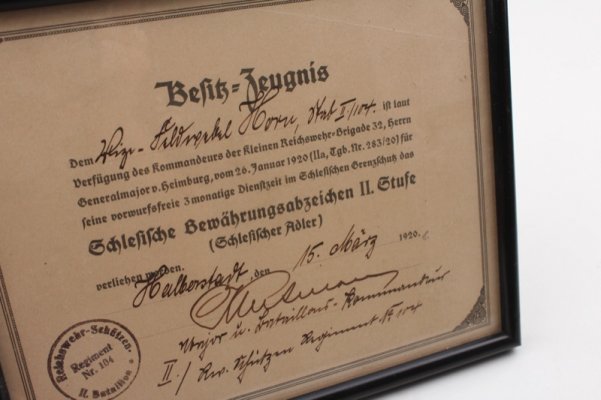 Besitz-Zeugnis
Dem Vize-Feldwebel Horn, Stab II/104. ist laut
Verfügung des Kommandeurs der Kleinen Reichswehr-Brigade 32, Herrn
Generalmajor v. Heimburg, vom 26. Januar 1920 (IIa, Tgb. Nr. 283/20) für
seine vorwurfsfreie 3 monatige Dienstzeit im Schlesischen Grenzschutz das
Schlesische Bewährungsabzeichen II. Stufe
(Schlesischer Adler)
verliehen worden.
Halberstadt, den 15. März 1920.
Major u. Bataillons-Kommandeur
II./Rw. Schützen Regiment Nr. 104
Reichswehr-Schützen-
Regiment
Nr. 104
II. Bataillon